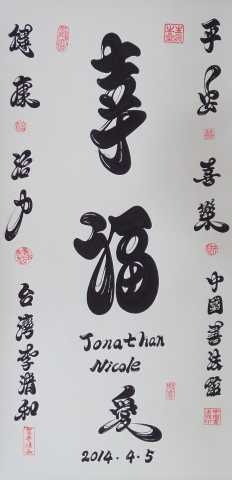 平安 喜樂 中國書法
幸福
Jonathan
Nicole
愛
2014.4.5
健康 活力 台灣李清和